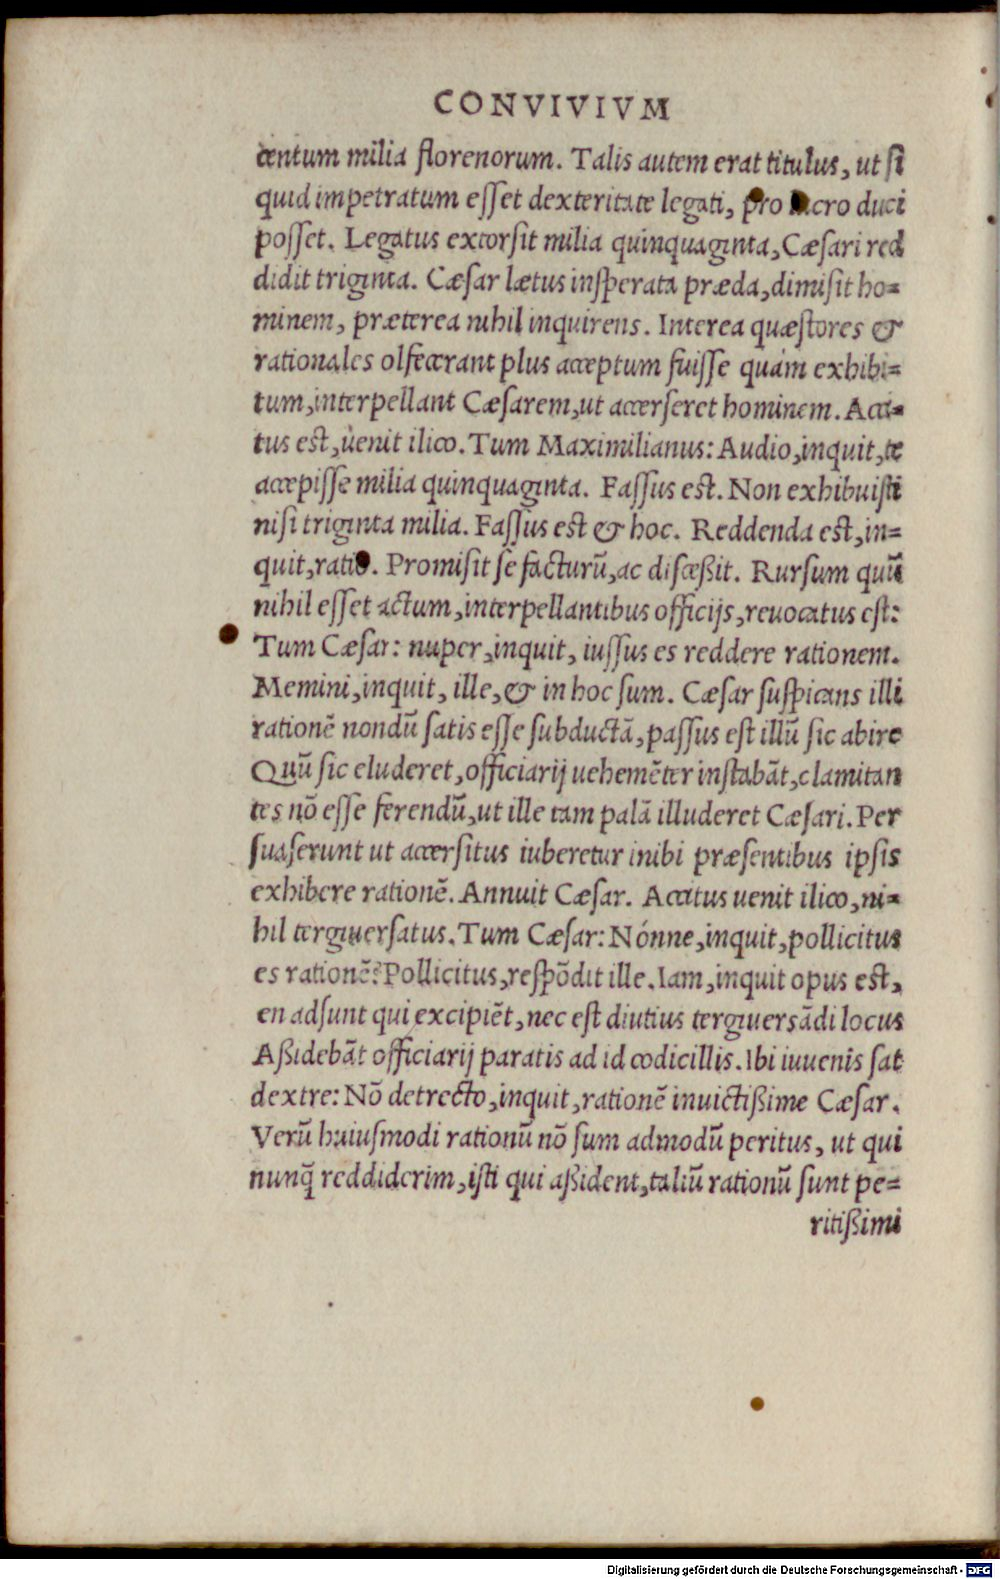 CONVIVIVM
centum milia florenorum. Talis autem erat titulus, ut si
quid impetratum esset dexteritate legati, pro lucro duci
posset. Legatus extorsit milia quinquaginta, Cæsari red
didit triginta. Cæsar lætus insperata præda, dimisit ho=
minem, præterea nihil inquirens. Interea quæstores &
rationales olfecerant plus acceptum fuisse quàm exhibi=
tum, interpellant Cæsarem, ut accerseret hominem. Acci=
tus est, uenit ilico. Tum Maximilianus: Audio, inquit, te
accepisse milia quinquaginta. Fassus est. Non exhibuisti
nisi triginta milia. Fassus est & hoc. Reddenda est, in=
quit, ratio. Promisit se facturū, ac disceßit. Rursum quū
nihil esset actum, interpellantibus officijs, reuocatus est:
Tum Cæsar: nuper, inquit, iussus es reddere rationem.
Memini, inquit, ille, & in hoc sum. Cæsar suspicans illi
rationē nondū satis esse subductā, passus est illū sic abire
Quū sic eluderet, officiarij uehemēter instabāt, clamitan
tes nō esse ferendū, ut ille tam palā illuderet Cæsari. Per
suaserunt ut accersitus iuberetur inibi præsentibus ipsis
exhibere rationē. Annuit Cæsar. Accitus uenit ilico, ni=
hil tergiuersatus. Tum Cæsar: Nónne, inquit, pollicitus
es rationē? Pollicitus, respōdit ille. Iam, inquit opus est,
en adsunt qui excipiēt, nec est diutius tergiuersādi locus
Aßidebāt officiarij paratis ad id codicillis. Ibi iuuenis sat
dextre: Nō detrecto, inquit, rationē inuictißime Cæsar.
Verū huiusmodi rationū nō sum admodū peritus, ut qui
nunq̄ reddiderim, isti qui aßident, taliū rationū sunt pe=
ritißimi
Digitalisierung gefördert durch die Deutsche Forschungsgemeinschaft - DFG